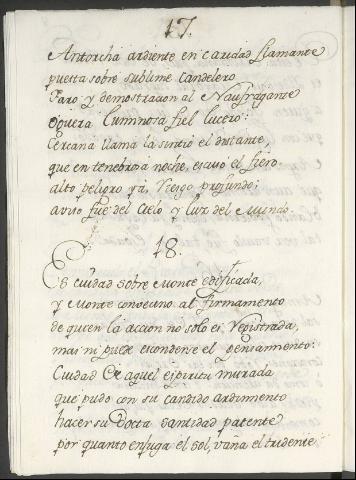 17.
Antorcha ardiente en caridad flamante
puesta sobre sublime candelero
Faro y demostracion al Naufragante
Oguera Luminosa fiel lucero:
Cercana llama la sintio el distante,
que en tenebrosa noche, escuso el fiero
alto peligro ya, riesgo profundo;
aviso fue del Cielo y luz del Mundo.
18.
Es cuidad sobre Monte edificada,
y Monte convecino al firmamento
de quien la accion no solo es registrada,
mas ni puede esconderse el pensamiento:
Cuidad de aquel espiritu murada
que pudo con su candido ardimento
hacer su Docta santidad patente
por quanto enjuga el sol, vaña el tridente.